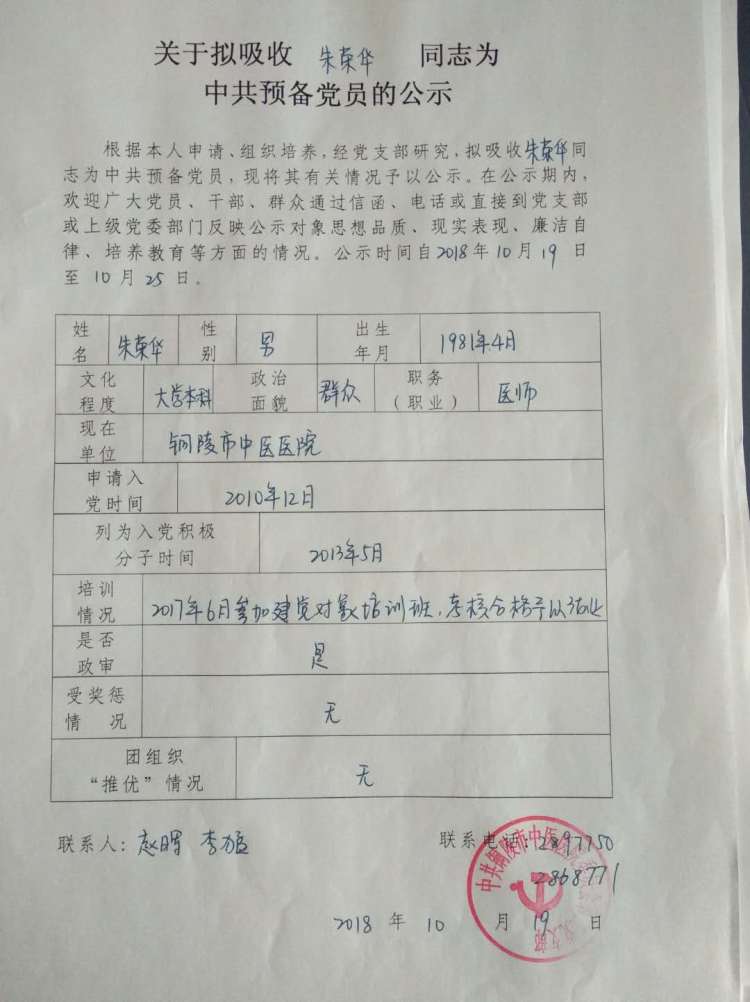 关于拟吸收 朱荣华 同志为
中共预备党员的公示
根据本人申请、组织培养,经党支部研究,拟吸收朱荣华同
志为中共预备党员,现将其有关情况予以公示。在公示期内,
欢迎广大党员、干部、群众通过信函、电话或直接到党支部
或上级党委部门反映公示对象思想品质、现实表现、廉洁自
律、培养教育等方面的情况。公示时间自2018年10月19日
至10月25日。
姓名 朱荣华 性别 男 出生年月 1981年4月
文化程度 大学本科 政治面貌 群众 职务(职业) 医师
现在单位 铜陵市中医医院
申请入党时间 2010年12月
列为入党积极分子时间 2013年5月
培训情况 2017年6月参加建党对象培训班,考核合格予以结业
是否政审 是
受奖惩情况 无
团组织“推优”情况 无
联系人:赵晖 李
联系电话:2897750
2868771
中共铜陵市中医医院
2018年10月19日